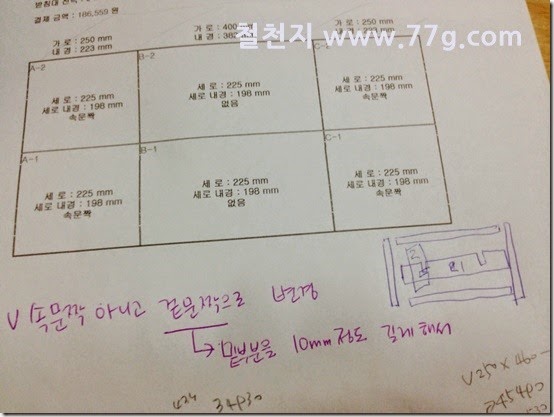 결제 금액 : 186,559 원
철천지 www.77g.com
가로 : 250 mm
내경 : 223 mm
가로 : 400
내경 :
가로 : 250 mm
A-2
세로 : 225 mm
세로 내경 : 198 mm
속문짝
B-2
세로 : 225 mm
세로 내경 : 198 mm
없음
C-2
세로 : 225 mm
세로 내경 : 198 mm
속문짝
A-1
세로 : 225 mm
세로 내경 : 198 mm
속문짝
B-1
세로 : 225 mm
세로 내경 : 198 mm
없음
C-1
세로 : 225 mm
세로 내경 : 198 mm
속문짝
V 속문짝 아니고 겉문짝으로 변경
밑부분을 10mm 정도 길게 해서